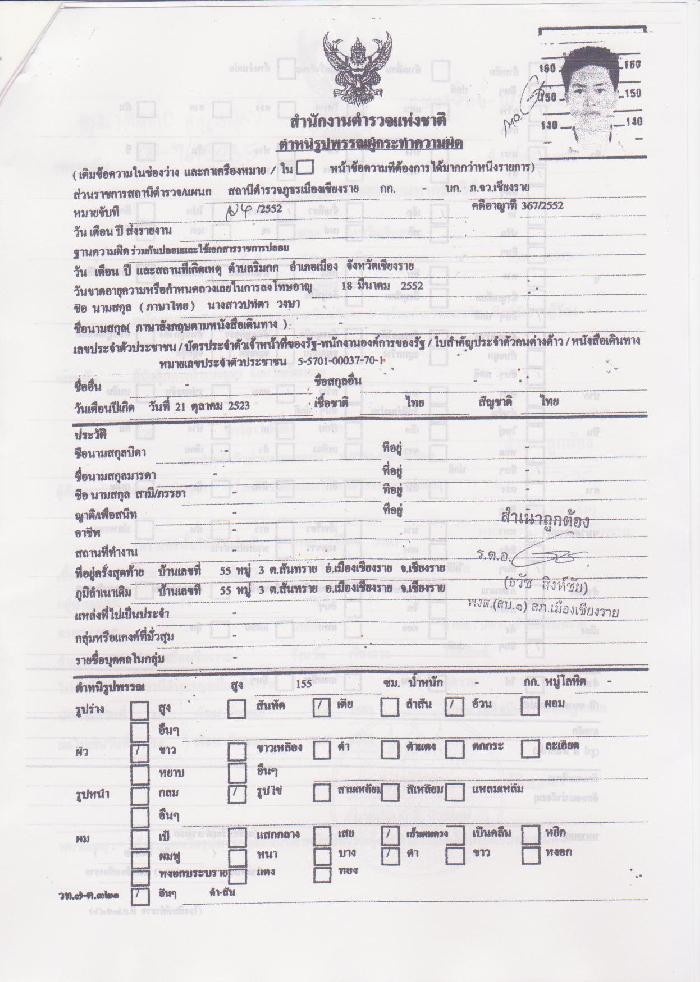 160 160
150 150
140 140
สำนักงานตำรวจแห่งชาติ
ตำหนิรูปพรรณผู้กระทำความผิด
( เติมข้อความในช่องว่าง และกาเครื่องหมาย / ใน หน้าข้อความที่ต้องการได้มากกว่าหนึ่งรายการ)
ส่วนราชการสถานีตำรวจ/แผนก สถานีตำรวจภูธรเมืองเชียงราย กก. - บก. ภ.จว.เชียงราย
หมายจับที่ /2552 คดีอาญาที่ 367/2552
วัน เดือน ปี ส่งรายงาน
ฐานความผิด ร่วมกันปลอมและใช้เอกสารราชการปลอม
วัน เดือน ปี และสถานที่เกิดเหตุ ตำบลริมกก อำเภอเมือง จังหวัดเชียงราย
วันขาดอายุความหรือกำหนดลวงเลยในการลงโทษอาญา 18 มีนาคม 2552
ชื่อ นามสกุล ( ภาษาไทย ) นางสาวปทิตา วงษา
ชื่อนามสกุล( ภาษาอังกฤษตามหนังสือเดินทาง ) -
เลขประจำตัวประชาชน / บัตรประจำตัวเจ้าหน้าที่ของรัฐ-พนักงานองค์การของรัฐ / ใบสำคัญประจำตัวคนต่างด้าว / หนังสือเดินทาง
หมายเลขประจำตัวประชาชน 5-5701-00037-70-1
ชื่ออื่น - ชื่อสกุลอื่น -
วันเดือนปีเกิด วันที่ 21 ตุลาคม 2523 เชื้อชาติ ไทย สัญชาติ ไทย
ประวัติ
ชื่อนามสกุลบิดา - ที่อยู่ -
ชื่อนามสกุลมารดา - ที่อยู่ -
ชื่อ นามสกุล สามี/ภรรยา - ที่อยู่ -
ญาติ/เพื่อสนิท - ที่อยู่ -
อาชีพ -
สถานที่ทำงาน -
สำเนาถูกต้อง
ร.ต.อ.
(ธวัช สิงห์ชัย)
พงส.(สบ.๑) สภ.เมืองเชียงราย
ที่อยู่ครั้งสุดท้าย บ้านเลขที่ 55 หมู่ 3 ต.สันทราย อ.เมืองเชียงราย จ.เชียงราย
ภูมิลำเนาเดิม บ้านเลขที่ 55 หมู่ 3 ต.สันทราย อ.เมืองเชียงราย จ.เชียงราย
แหล่งที่ไปเป็นประจำ -
กลุ่มหรือแก๊งค์ที่มั่วสุม -
รายชื่อบุคคลในกลุ่ม -
ตำหนิรูปพรรณ สูง 155 ซม. น้ำหนัก - กก. หมู่โลหิต -
รูปร่าง สูง สันทัด / เตี้ย ล่ำสัน / อ้วน ผอม
อื่นๆ
ผิว / ขาว ขาวเหลือง ดำ ดำแดง ตกกระ ละเอียด
หยาบ อื่นๆ
รูปหน้า กลม / รูปไข่ สามเหลี่ยม สี่เหลี่ยม แหลมหลิม
อื่นๆ
ผม เป๋ แสกกลาง เสย / เป็นคลื่น หยิก
ผมฟู หนา บาง / ดำ ขาว หงอก
หงอกประปราย แดง ทอง
วท.๗-ต.๓๒๑ / อื่นๆ ดำ-สั้น